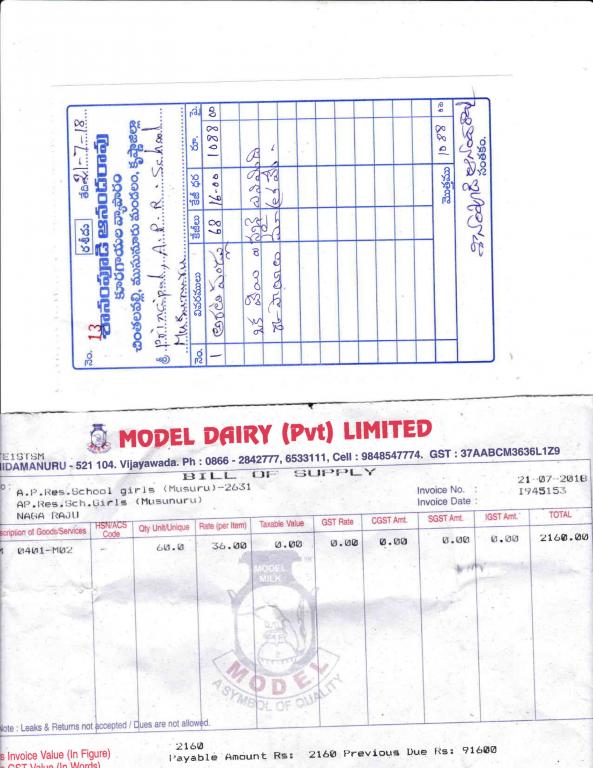 రశీదు
నెం. 13 తేది 21-7-18
శానంపూడి ఆనందరావు
కూరగాయల వ్యాపారం
చింతలవల్లి, ముసునూరు మండలం, కృష్ణాజిల్లా
శ్రీ Principal, A.P.R. School
Musunuru
నెం. వివరములు కేజీలు కేజీ ధర రూ. పై.
1 అరటి పండ్లు 68 16-00 1088 00
మొత్తము 1088 00
సంతకం.
MODEL DAIRY (Pvt) LIMITED
IDAMANURU - 521 104. Vijayawada. Ph : 0866 - 2842777, 6533111, Cell : 9848547774. GST : 37AABCM3636L1Z9
BILL OF SUPPLY
A.P.Res.School girls (Musuru)-2631
AP.Res.Sch.Girls (Musunuru)
NAGA RAJU
21-07-2018
Invoice No. : 1945153
Invoice Date :
scription of Goods/Services HSN/ACS Code Qty Unit/Unique Rate (per Item) Taxable Value GST Rate CGST Amt. SGST Amt. IGST Amt. TOTAL
0401-M02 - 60.0 36.00 0.00 0.00 0.00 0.00 0.00 2160.00
MODEL MILK
MODEL
A SYMBOL OF QUALITY
Note : Leaks & Returns not accepted / Dues are not allowed.
s Invoice Value (In Figure) 2160
Payable Amount Rs: 2160 Previous Due Rs: 91600
GST Value (In Words)